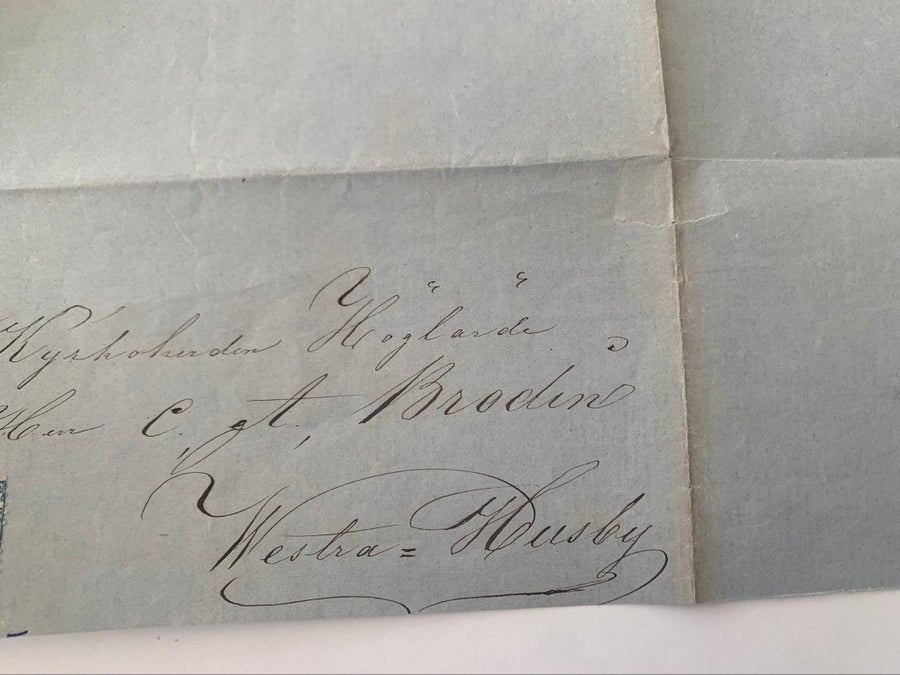 Kyrkoherden Höglärde
Herr C. A. Brodin
Westra=Husby